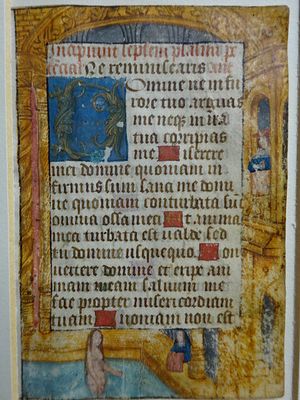 Incipiunt septem psalmi pe
Ne reminiscaris
Domine ne in fu
rore tuo arguas
me neqꝫ in ira
tua corripias
me Miserere
mei domine quoniam in
firmus sum sana me domi
ne quoniam conturbata sūt
omnia ossa mea Et anima
mea turbata est valde sed
tu domine usquequo Con
vertere domine et eripe ani
mam meam salvum me
fac propter misericordiam
tuam Quoniam non est